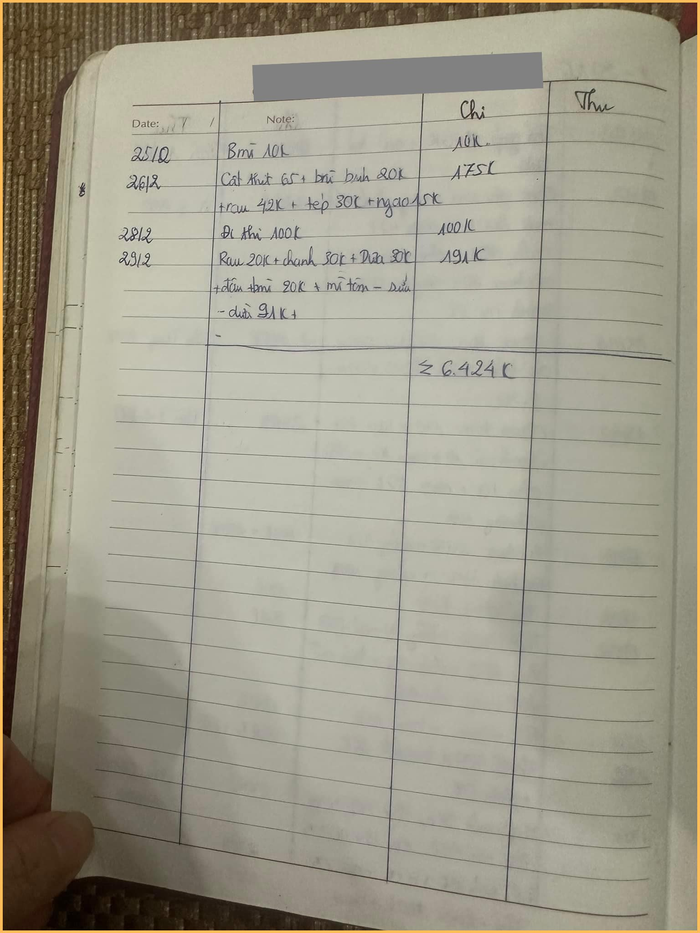 Chi Thu
Date: / / Note:
25/2 Bmì 10K 10K.
26/2 Cắt thịt 65 + bmì bình 20K 175K
+ rau 42K + tép 30K + ngao 15K
28/2 Đi thi 100K 100K
29/2 Rau 20K + chanh 30K + Dưa 30K 191K
+ đậu + bmì 20K + mì tôm - sữa
- dưa 91K +
-
Σ 6.424K